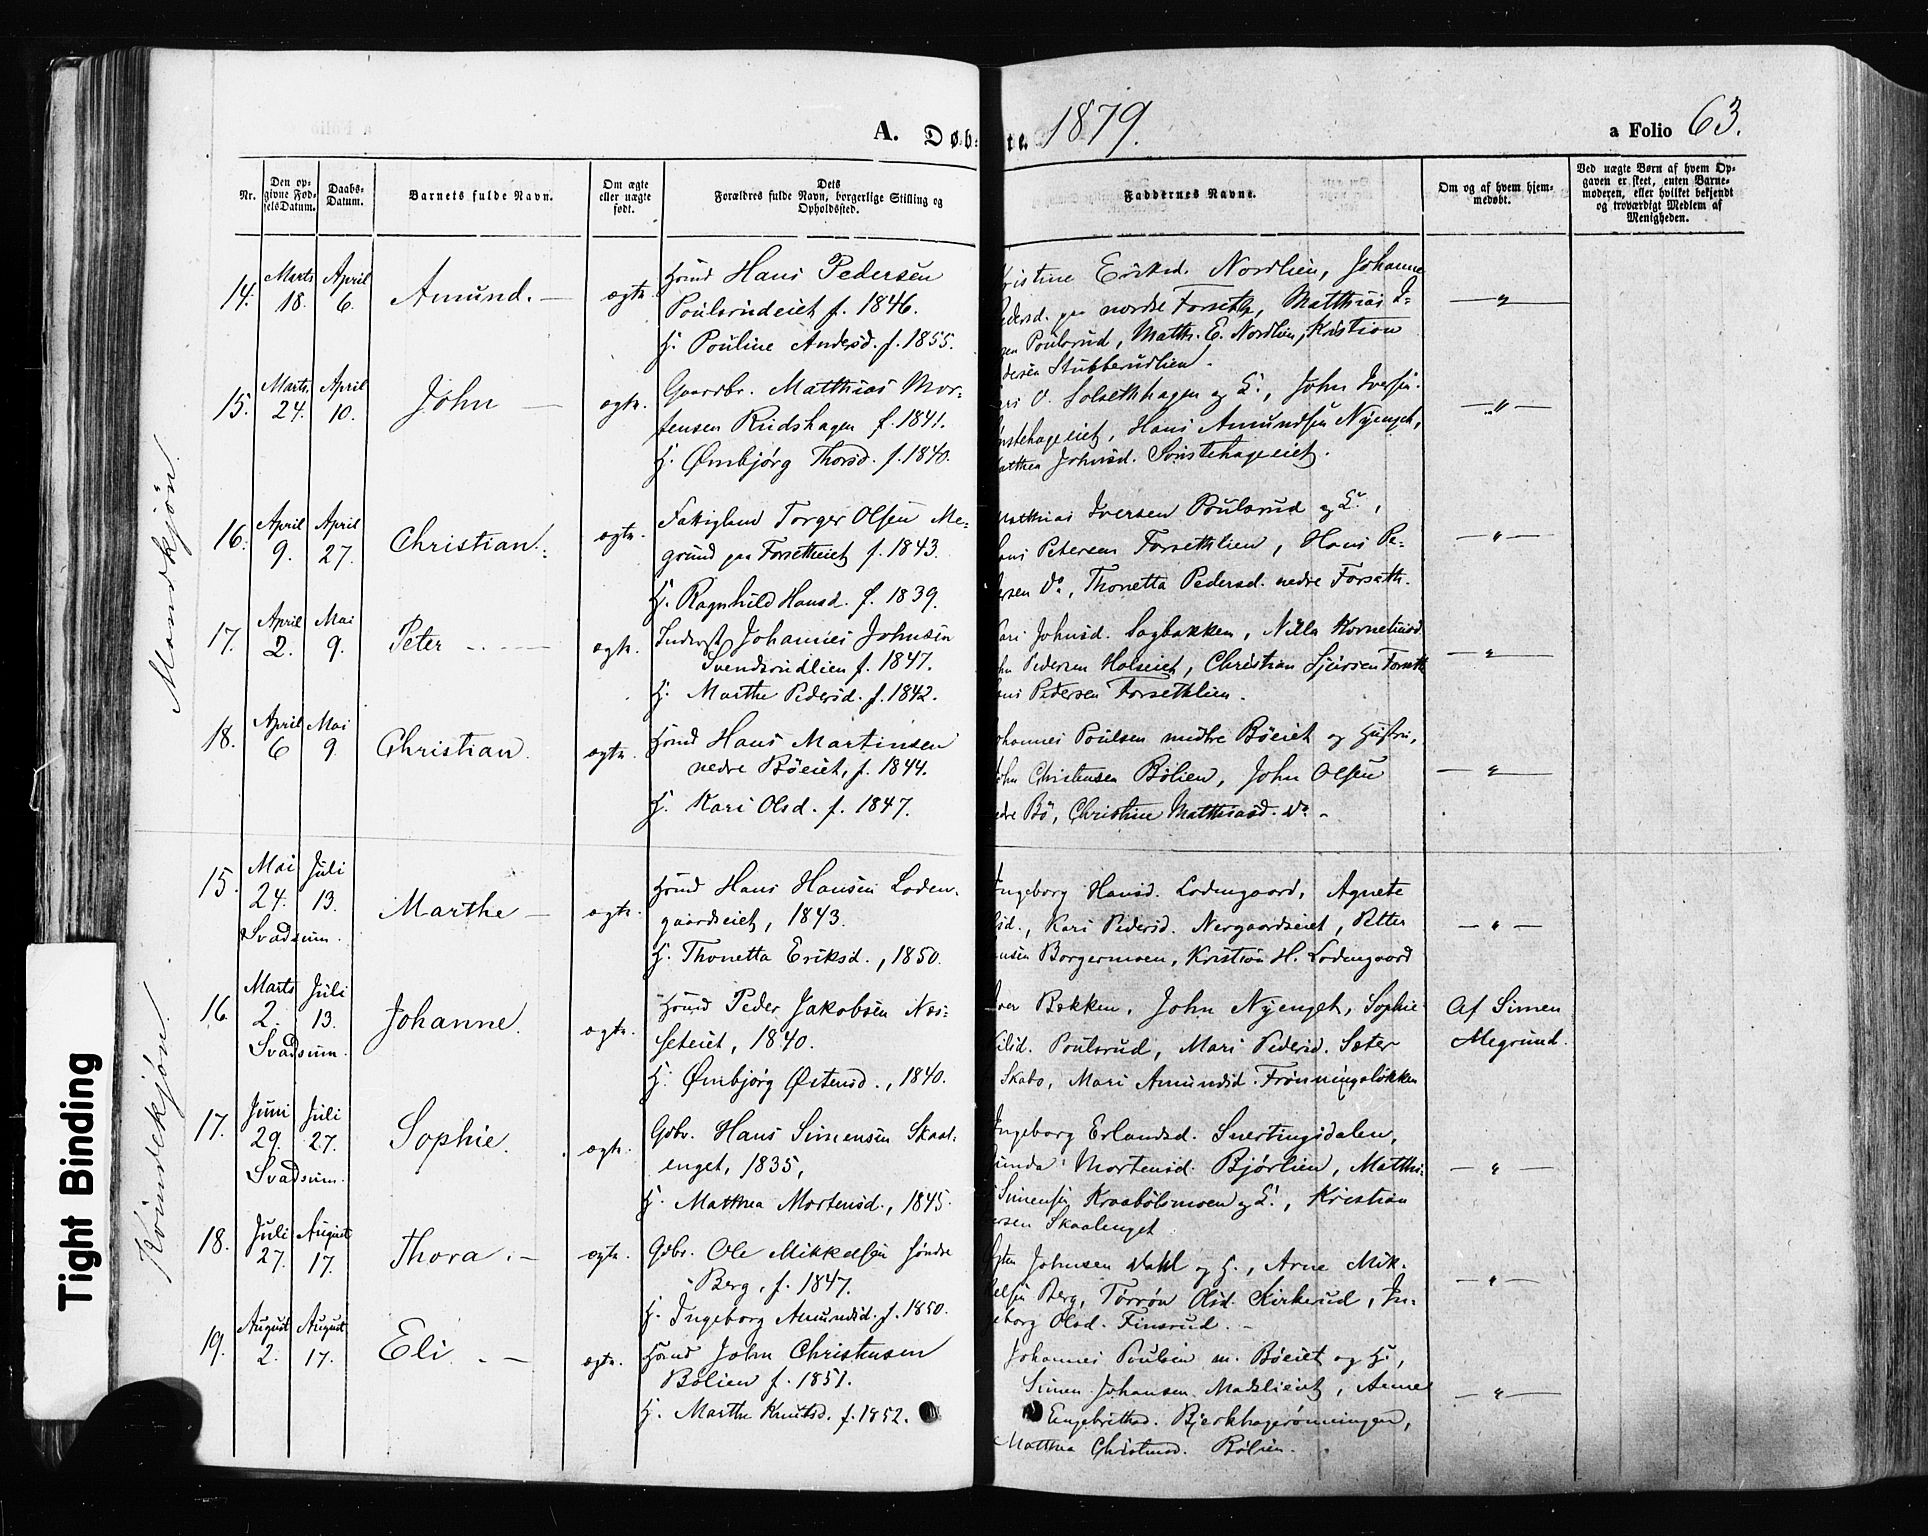 A. Døb- te. 1879. a Folio 63.
Nr. | Den opgivne Fødselsdatum. | Daabs-Datum. | Barnets fulde Navn. | Om ægte eller uægte født. | Dets Forældres fulde Navn, borgerlige Stilling og Opholdssted. | Faddernes Navne. | Om og af hvem hjemmedøbt. | Ved uægte Børn af hvem Opgaven er skeet, enten Barnemoderen, eller hvilket bekjendt og troværdigt Medlem af Menigheden.
Mandkjøn.
14. Marts 18. April 6. Amund. — ægte.
Hmd Hans Pedersen
Poulsrudeiet f. 1846.
H. Pouline Andersd. f. 1855.
ristine Eriksd. Nordlien, Johanne
Pedersd. paa nordre Forseth, Matthias I-
sen Poulsrud, Mathi. E. Nordlien, Kristian
dersen Stubberudlien.
— " —
15. Marts 24. April 10. John — ægte.
Gaardbr. Matthias Mor-
tensen Rudshagen f. 1841.
H. Ømbjørg Thorsd. f. 1840.
O. Solsethhagen og H., John Iversen
nstehageeiet, Hans Amundsen Nyenget,
atthea Johnsd. Sønstehageeiet.
— " —
16. April 9. April 27. Christian. ægte.
Torger Olsen Me-
grund paa Forsetheiet f. 1843.
H. Ragnhild Hansd. f. 1839.
Mathias Iversen Poulsrud og H.,
ans Petersen Forsethlien, Hans Pe-
ersen do., Thonetta Pedersd. nedre Forseth.
— " —
17. April 2. Mai 9. Peter — ægte.
Inderst Johannes Johnsen
Svendsrudlien f. 1847.
H. Marthe Pedersd. f. 1842.
Kari Johnsd. Sagbakken, Nilla Korneliusd.
ohn Pedersen Holseiet, Christian Forseth
ans Pedersen Forsethlien.
— " —
18. April 6 Mai 9 Christian. ægte.
Hmd Hans Martinsen
nedre Bøeiet, f. 1844.
H. Kari Olsd. f. 1847.
Johannes Poulsen midtre Bøeiet og Hustru,
John Christensen Bølien, John Olsen
dre Bø, Christine Matthiasd. do. -
— " —
Kvindekjøn.
15. Mai 24. Juli 13. Svadsum. Marthe — ægte.
Hmd Hans Hansen Loden-
gaardseiet, 1843.
H. Thonetta Eriksd., 1850.
Ingeborg Hansd. Lodengaard, Agnete
lsd., Kari Pedersd. Nergaardseiet, Petter
ansen Borgermoen, Kristian H. Lodengaard
— " —
16. Marts 2. Juli 13. Svadsum. Johanne. ægte.
Hmd Peder Jakobsen Næs-
seteiet, 1840.
H. Ømbjørg Østensd., 1840.
Iver Bækken, John Nyenget, Sophie
Poulsrud, Mari Pedersd. Sæter
Skabo, Mari Amundsd. Frønningsløkken
Af Simen
Megrund.
17. Juni 29. Juli 27. Svadsum. Sophie. ægte.
Gdbr. Hans Simensen Skaal-
enget, 1835,
H. Matthea Mortensd., 1845.
Ingeborg Erlandsd. Snertingsdalen,
unda Mortensd. Bjørlien, Matthi-
Simensen Kraabølsmoen og H., Kristian
ersen Skaalenget
— " —
18. Juli 27. August 17. Thora. — ægte.
Gdbr. Ole Mikkelsen søndre
Berg, f. 1847.
H. Ingeborg Amundsd. f. 1850.
Johnsen Dahl og H., Arne Mik-
kelsen Berg, Tørrøn Olsd. Kirkerud, In-
geborg Olsd. Finsrud. -
— " —
19. August 2. August 17. Eli. — ægte.
Hmd John Christensen
Bølien f. 1851.
H. Marthe Knutsd. f. 1852.
Johannes Poulsen m. Bøeiet og H.,
Simen Johansen Madslieiet, Anne
Engebrethsd. Bjerkhagerønningen,
Matthea Christensd. Bølien.
— " —
Tight Binding